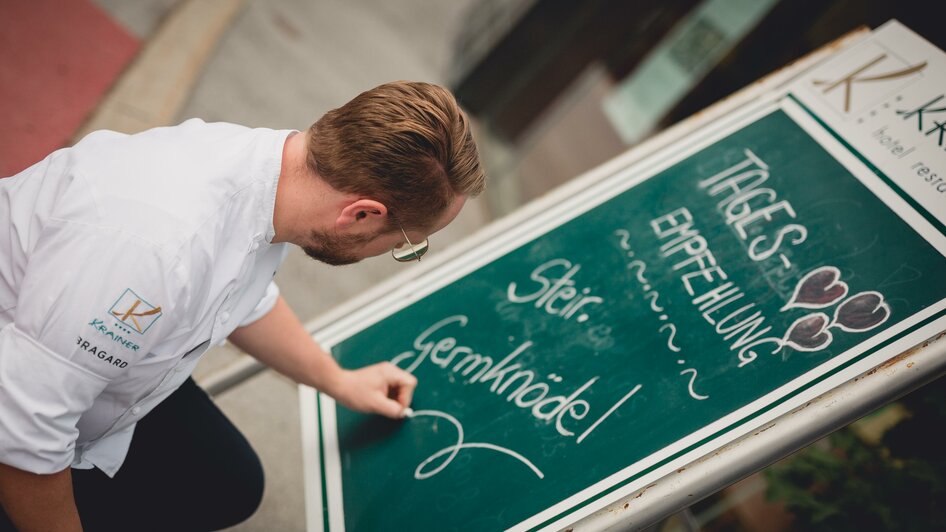 K
KRAINER
BRAGARD
K
hotel
TAGES-
EMPFEHLUNG
Steir.
Germknödel!